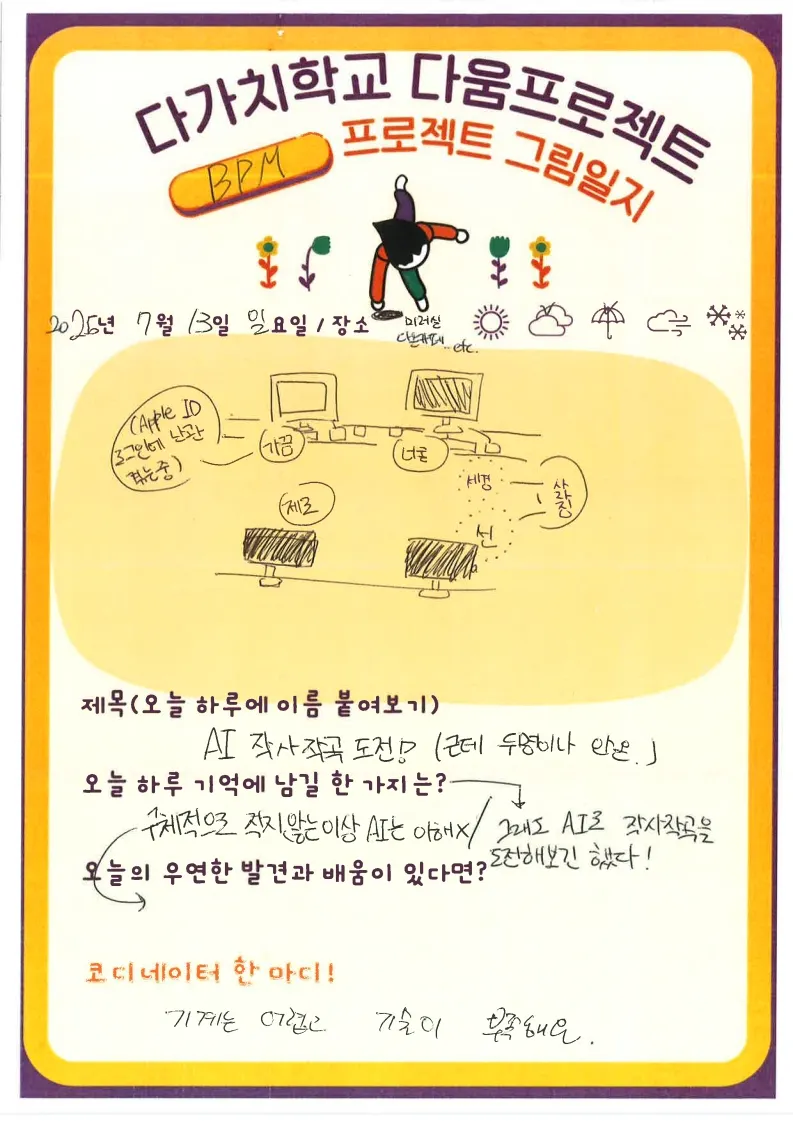 다가치학교 다움프로젝트
프로젝트 그림일지
BPM
2025년 7월 13일 일요일 / 장소 미러실
etc.
(Apple ID
로그인에 난관
겪는중)
가끔
너론
세경
사라짐
제로
선
제목(오늘 하루에 이름 붙여보기)
AI 작사작곡 도전! (근데 두명이나 안옴.)
오늘 하루 기억에 남길 한 가지는?
구체적으로 적지않는이상 AI는 이해X / 그래도 AI로 작사작곡을
도전해보긴 했다!
오늘의 우연한 발견과 배움이 있다면?
코디네이터 한 마디!
기계는 어렵고 기술이 부족해요.